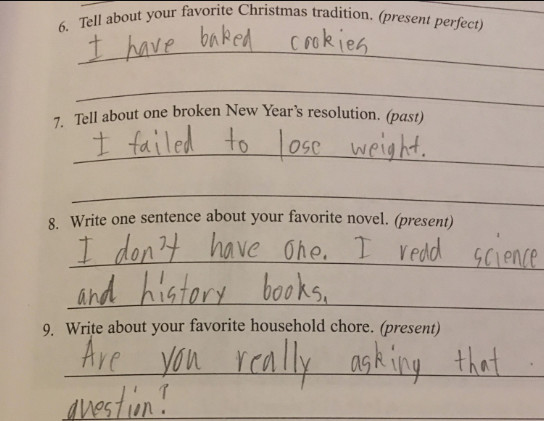 6. Tell about your favorite Christmas tradition. (present perfect)
I have baked cookies
7. Tell about one broken New Year's resolution. (past)
I failed to lose weight.
8. Write one sentence about your favorite novel. (present)
I don't have one. I redd science
and history books.
9. Write about your favorite household chore. (present)
Are you really asking that
question?